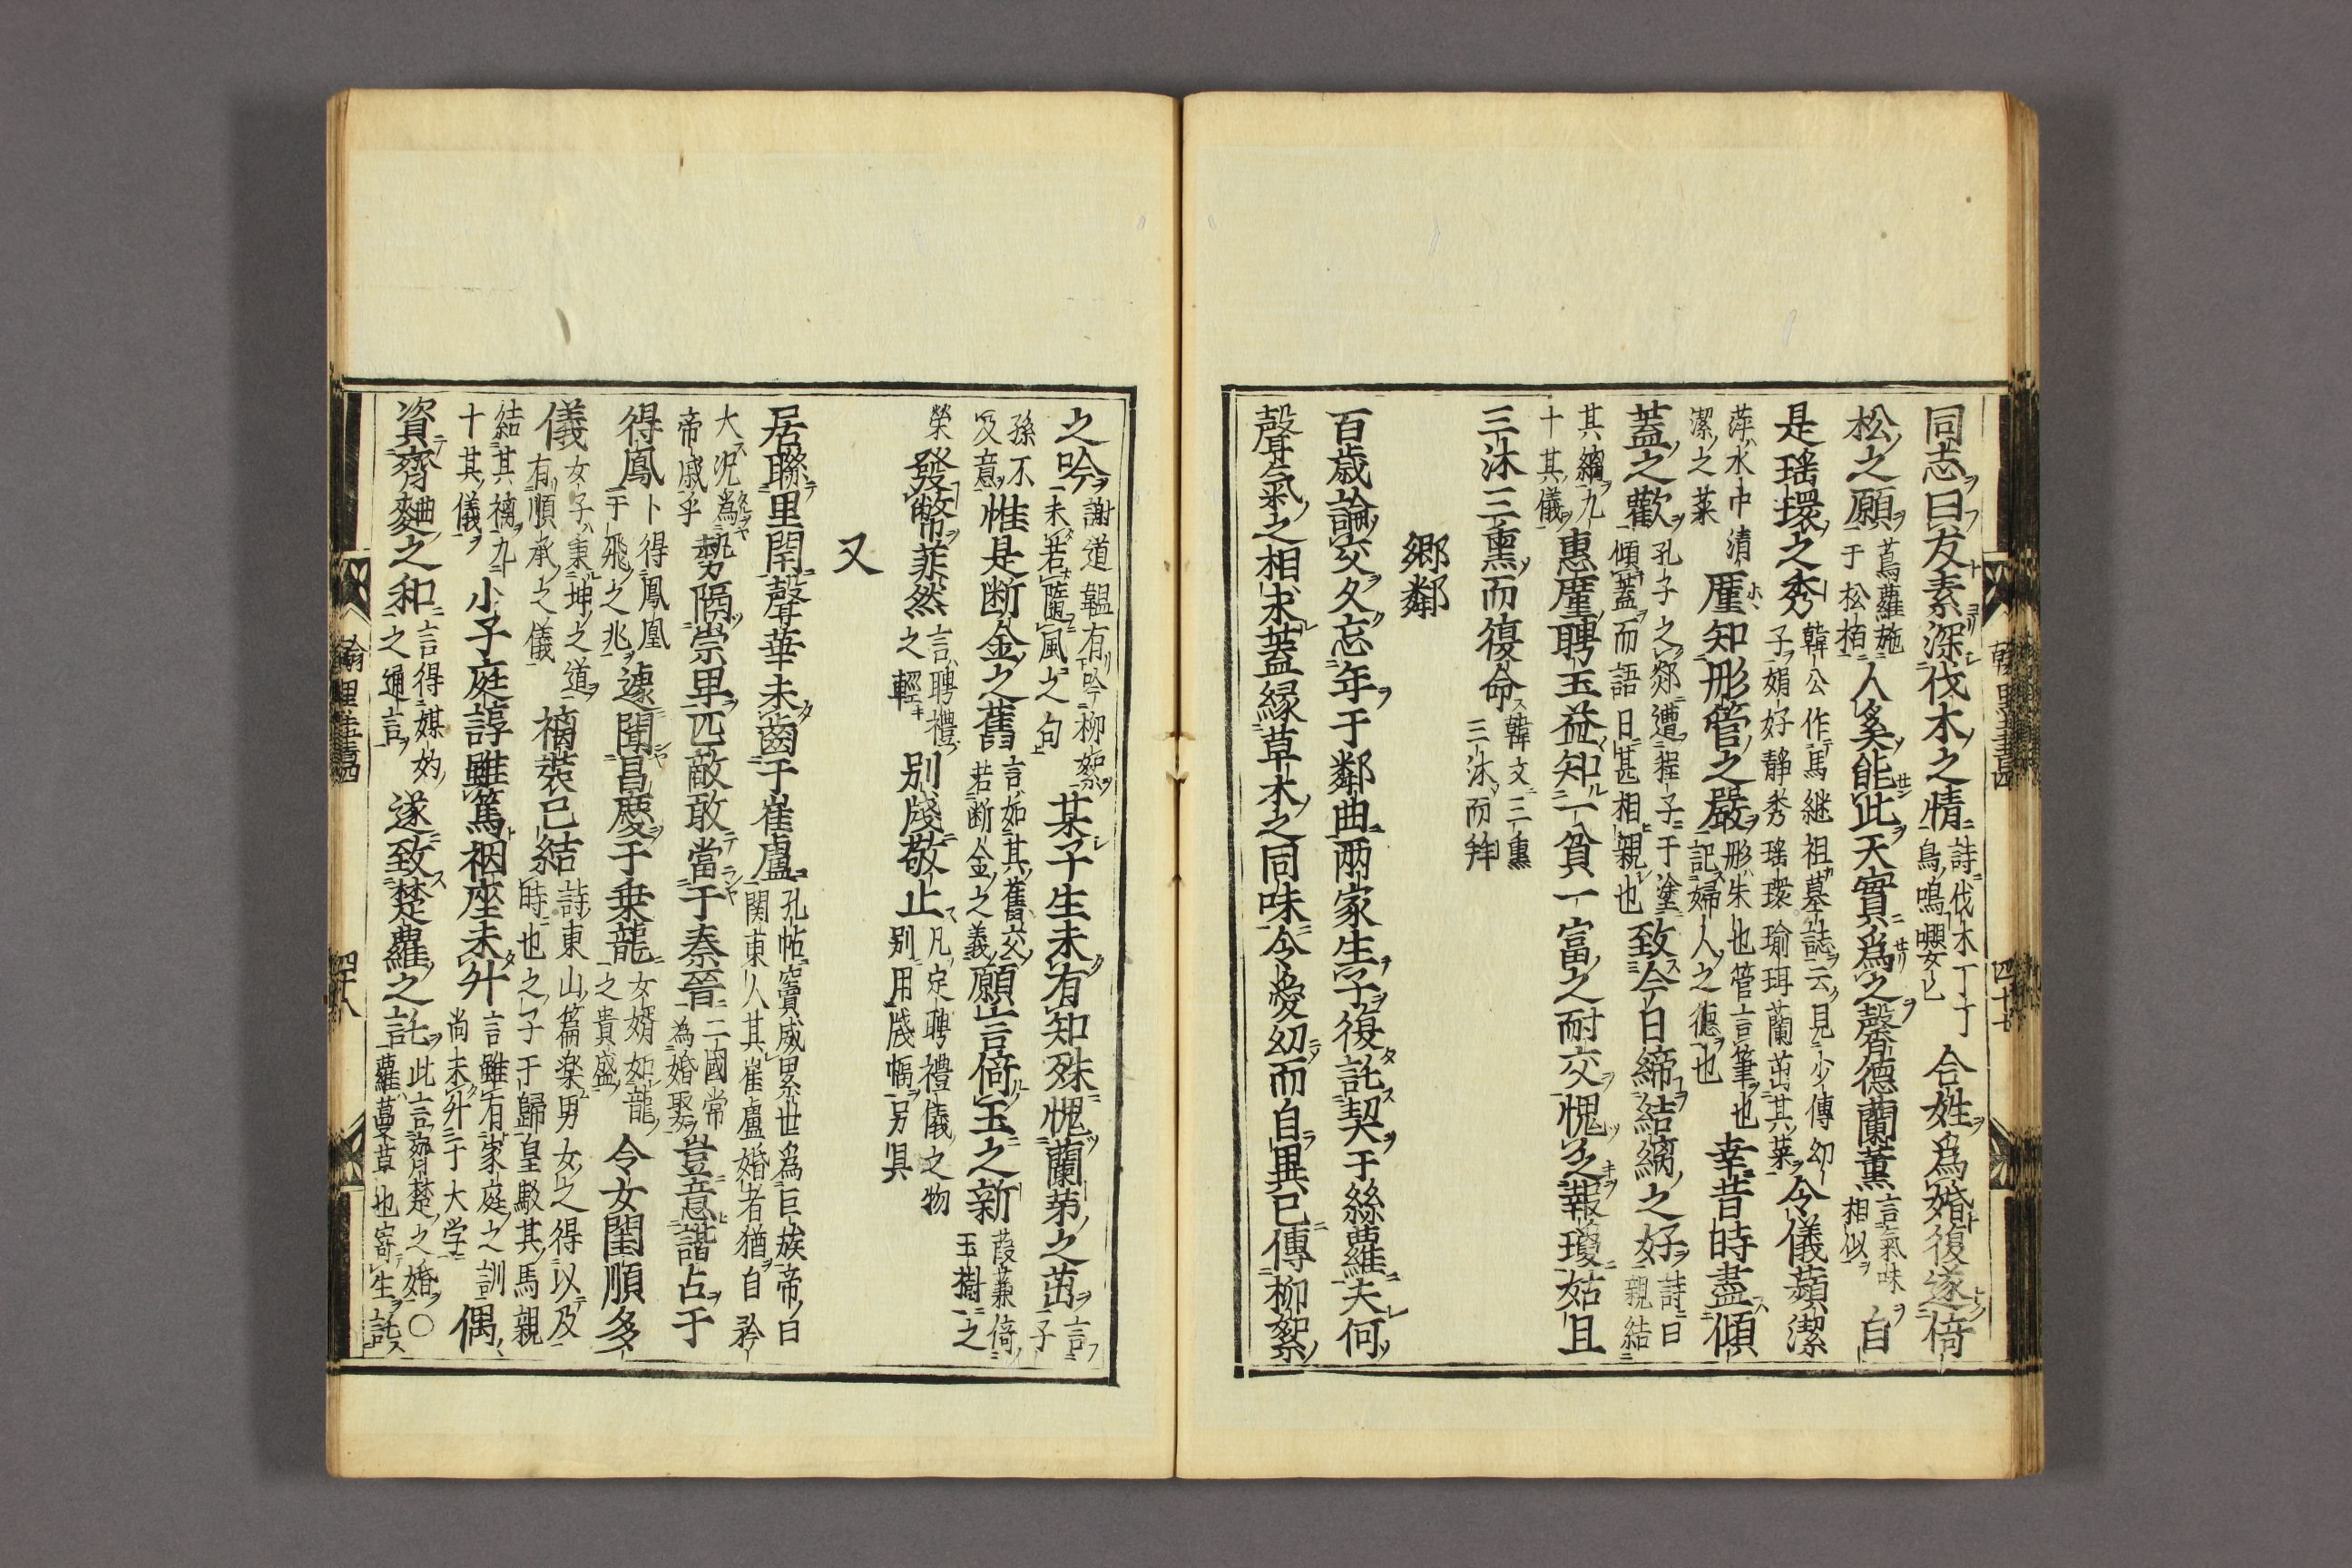 同志曰友素深伐木之情詩伐木丁丁鳥鳴嚶〻合姓爲婚復遂倚
松之願蔦蘿施于松栢人奚能此天實爲之馨德蘭薫言氣味相似自
是瑶環之秀韓公作馬継祖墓誌云見少傳幼子娟好静秀瑶環瑜珥蘭茁其葉令儀蘋潔
萍水中清潔之菜厪知彤管之嚴彤朱也管言筆也記婦人之德也幸昔時盡傾
蓋之歡孔子之郯遭程子于塗傾蓋而語日甚相親也致今日締結縭之好詩曰親結
其縭九十其儀惠厪聘玉益知一貧一富之耐交愧乏報瓊姑且
三沐三熏而復命韓文三熏三沐而拜
鄉鄰
百歲論交久忘年于鄰曲兩家生子復託契于絲蘿夫何
聲氣之相求蓋緣草木之同味令愛幼而自異已傳柳絮
之吟謝道韞有吟柳絮未若隨風之句某子生未有知殊愧蘭茅之茁言子
孫不及意惟是斷金之舊言如其舊交若断金之義願言倚玉之新葭蒹倚玉樹之
榮發幣菲然言聘禮之輕别牋敬止凡定聘禮儀之物别用牋幅另具
又
居聯里閈聲華未齒于崔盧孔帖竇威累世爲巨族帝曰関東人其崔盧婚者猶自矜
大况爲帝戚乎勢隔崇卑匹敵敢當于秦晉二國常為婚娶豈意諧占于
得鳳卜得鳳凰于飛之兆遽聞昌慶于乗龍女婿如龍之貴盛令女閨順多
儀女子秉坤之道有順承之儀褵裝已結詩東山篇楽男女之得以及時也之子于歸皇駁其馬親
結其褵九十其儀小子庭諄雖篤裀座未升言雖有家庭之訓尚未升于大学偶
資齊麴之和言得媒妁之通言遂致楚蘿之託此言齊楚之婚〇蘿蔓草也寄生託
翰墨全書四 四十七
四十八